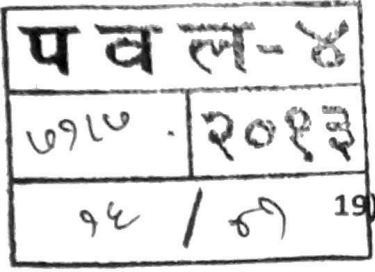 पवल-४
७१८७ २०१३
१६ /
19)